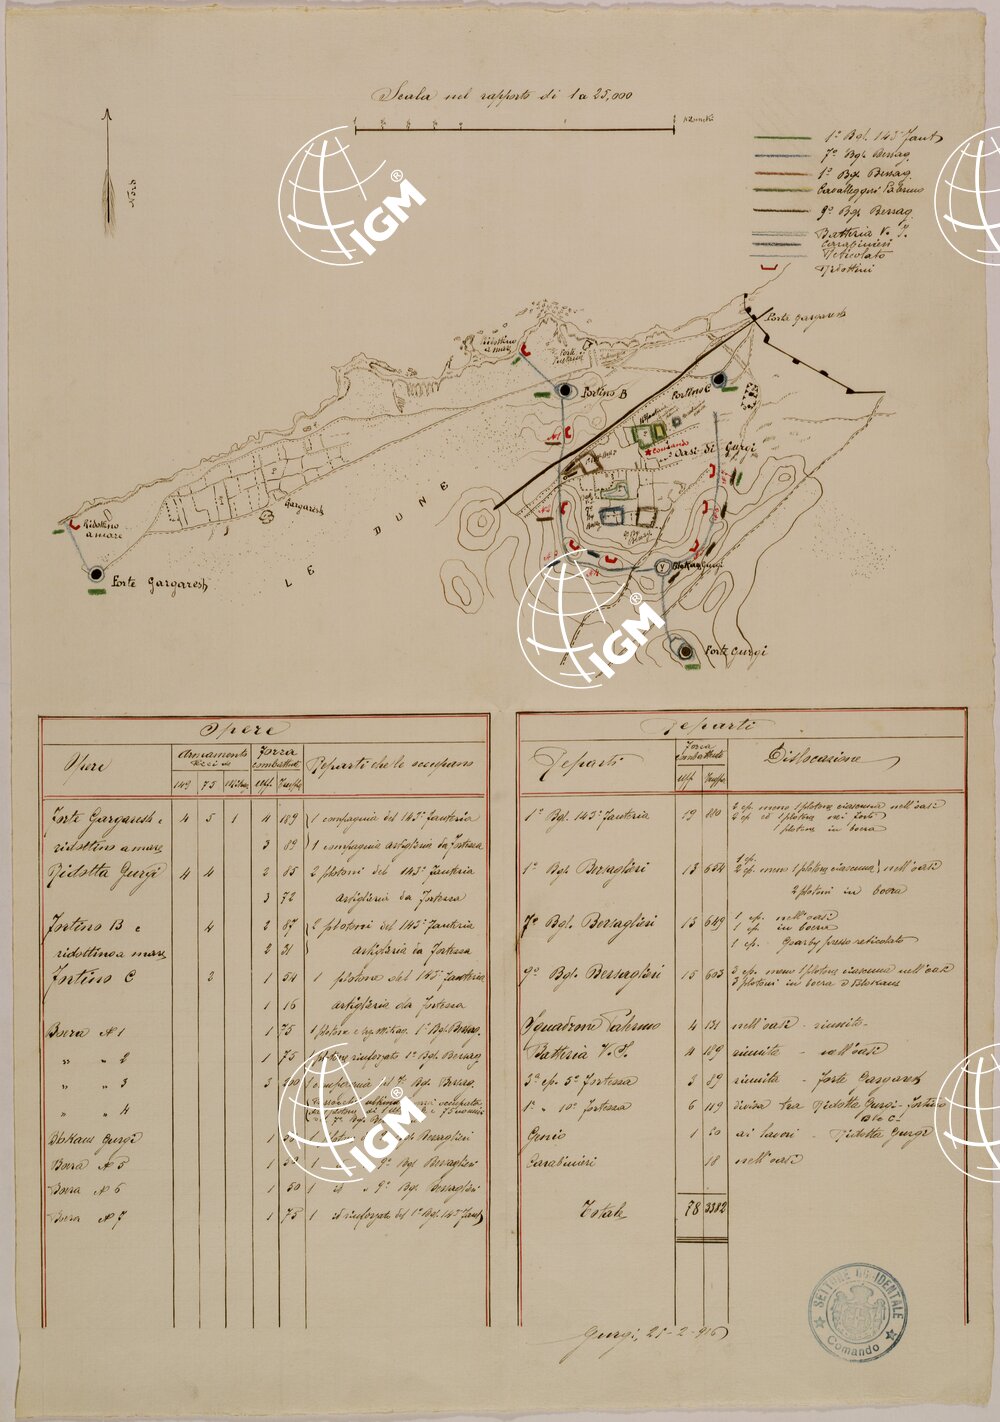 Scala nel rapporto di 1 a 25,000
Nord
1º Bgl. 143º Fant
7º Bgl. Bersag.
1º Bgl. Bersag.
Cavalleggeri Palermo
9º Bgl. Bersag.
Batteria V. S.
Carabinieri
Reticolato
Ridottini
IGM ®
Forte Gargaresh
Ridottino a mare
Fortino B
Fortino C
Comando
Oasi di Gurgi
Gargaresh
LE DUNE
Ridottino a mare
Forte Gargaresh
Blokaus Gurgi
Forte Gurgi
IGM ®
Opere
Opere
Armamento
Pezzi da
149 75
Forza combattente
uff. Truppa
Reparti che le occupano
Forte Gargaresh e 4 5 1 4 189 1 compagnia del 143º Fanteria
ridottino a mare 3 89 1 compagnia artiglieria da Fortezza
Ridotta Gurgi 4 4 2 85 2 plotoni del 143º Fanteria
3 72 artiglieria da Fortezza
Fortino B e 4 2 87 2 plotoni del 143º Fanteria
ridottino a mare 2 31 artiglieria da Fortezza
Fortino C 2 1 54 1 plotone del 143º Fanteria
1 16 artiglieria da Fortezza
Boera Nº 1 1 75 1 plotone e sez. mitrag. 1º Bgl. Bersag.
" " 2 1 75 1 plotone rinforzato 1º Bgl. Bersag
" " 3 3 200 1 compagnia del 7º Bgl. Bersag.
" " 4
Blokaus Gurgi 1 Bersaglieri
Boera Nº 5 1 1 9º Bgl Bersaglieri
Boera Nº 6 1 50 1 id " 9º Bgl. Bersaglieri
Boera Nº 7 1 75 1 id rinforzato del 1º Bgl. 143º Fant
Reparti
Reparti
Forza combattente
uff Truppa
Dislocazione
1º Bgl. 143º Fanteria 19 880 2 cp. meno 1 plotone ciascuna nell'oasi
2 cp. ed 1 plotone nei forti
1 plotone in boera
1º Bgl. Bersaglieri 13 654 1 cp.
2 cp. meno 1 plotone ciascuna } nell'oasi
2 plotoni in boera
7º Bgl. Bersaglieri 15 649 1 cp. nell'oasi
1 cp. in boera
1 cp. Gearby presso reticolato
9º Bgl. Bersaglieri 15 603 2 cp. meno 1 plotone ciascuna nell'oasi
3 plotoni in boera e Blokaus
Squadrone Palermo 4 131 nell'oasi - riunito -
Batteria V. S. 4 189 riunita - nell'oasi
3ª cp. 5º Fortezza 3 89 riunita - Forte Gargaresh
1ª " 10º Fortezza 6 119 divisa tra Ridotta Gurgi - Fortino
B e C.
Genio 1 20 ai lavori - Ridotta Gurgi
Carabinieri 18 nell'oasi
Totale 78 3382
Gurgi, 25-2-916
SETTORE OCCIDENTALE
Comando